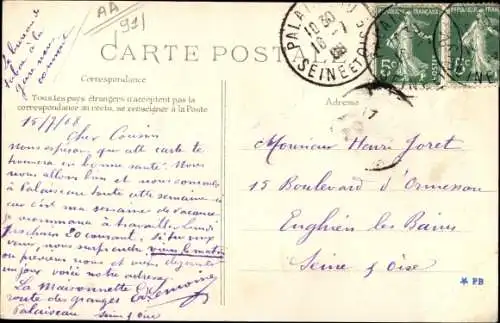 AA
91)
Le bureau
tabac à la
gare
CARTE POSTALE
PALAISEAU
10 30
16 - 7
08
SEINE ET OISE
5c
5c
Correspondance
Tous les pays étrangers n'acceptent pas la
correspondance au recto, se renseigner à la Poste
Adresse
15/7/08
Cher Cousin
nous espérons que cette carte te
trouvera en bonne santé. Nous
nous allons bien et nous sommes
à Palaiseau toute cette semaine
car c'est ma semaine de vacances
je recommence à travailler lundi
prochain 20 courant, si tu veux
venir, nous surprendre viens le matin
ou préviens nous et viens déjeuner
un jour voici notre adresse
La Maisonnette Lemoine
route des granges
Palaiseau Seine & Oise
Monsieur Henri Joret
15 Boulevard d'Ormesson
Enghien les Bains
Seine & Oise
* PB